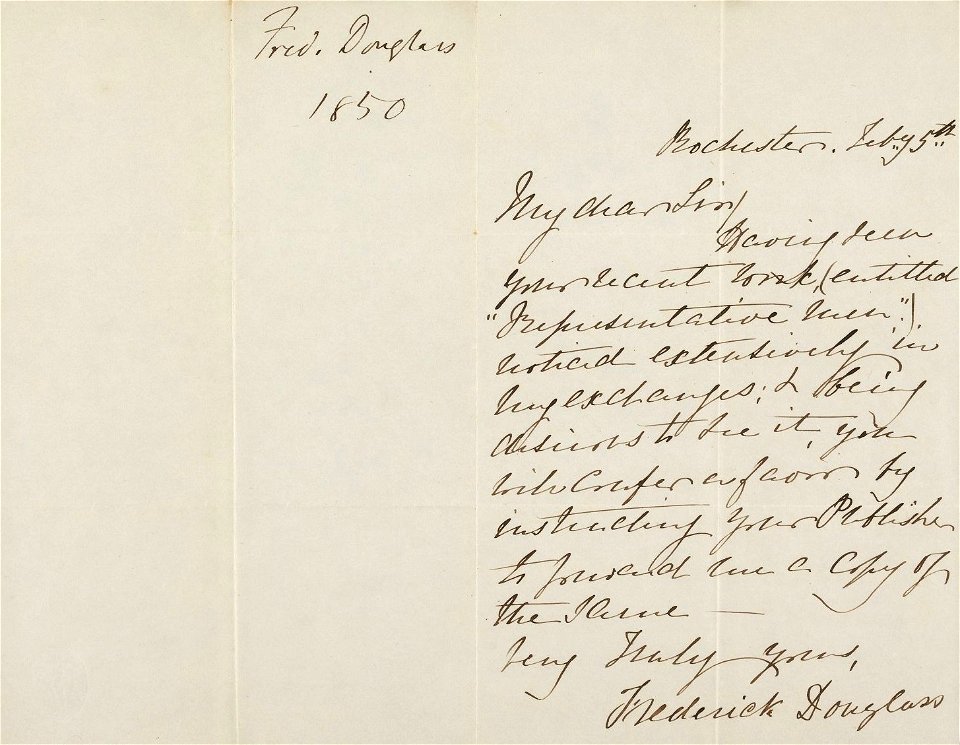 Fred. Douglass
1850
Rochester. Feby 5th
My dear Sir/
Having seen
your recent work, (entitled
"Representative Men".)
noticed extensively in
my exchanges; & being
desirous to see it, you
will confer a favor by
instructing your Publisher
to forward me a copy of
the same —
Very Truly yours,
Frederick Douglass